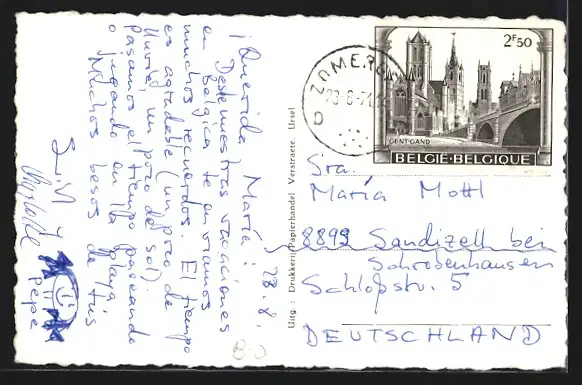 28.8.
¡Querida María:
Desde nuestras vacaciones
en Belgica te enviamos
muchos recuerdos. El tiempo
es agradable (un poco de
lluvia, un poco de sol).
Pasamos el tiempo paseando
o jugando en la playa.
Muchos besos de tus
y
Pepe
Uitg.: Drukkerij-Papierhandel Verstraete, Ursel
ZOMERGEM
28-8-71
D
2F50
GENT-GAND
BELGIË·BELGIQUE
Sra.
María Mottl
8899 Sandizell bei
Schrobenhausen
Schloßstr. 5
DEUTSCHLAND